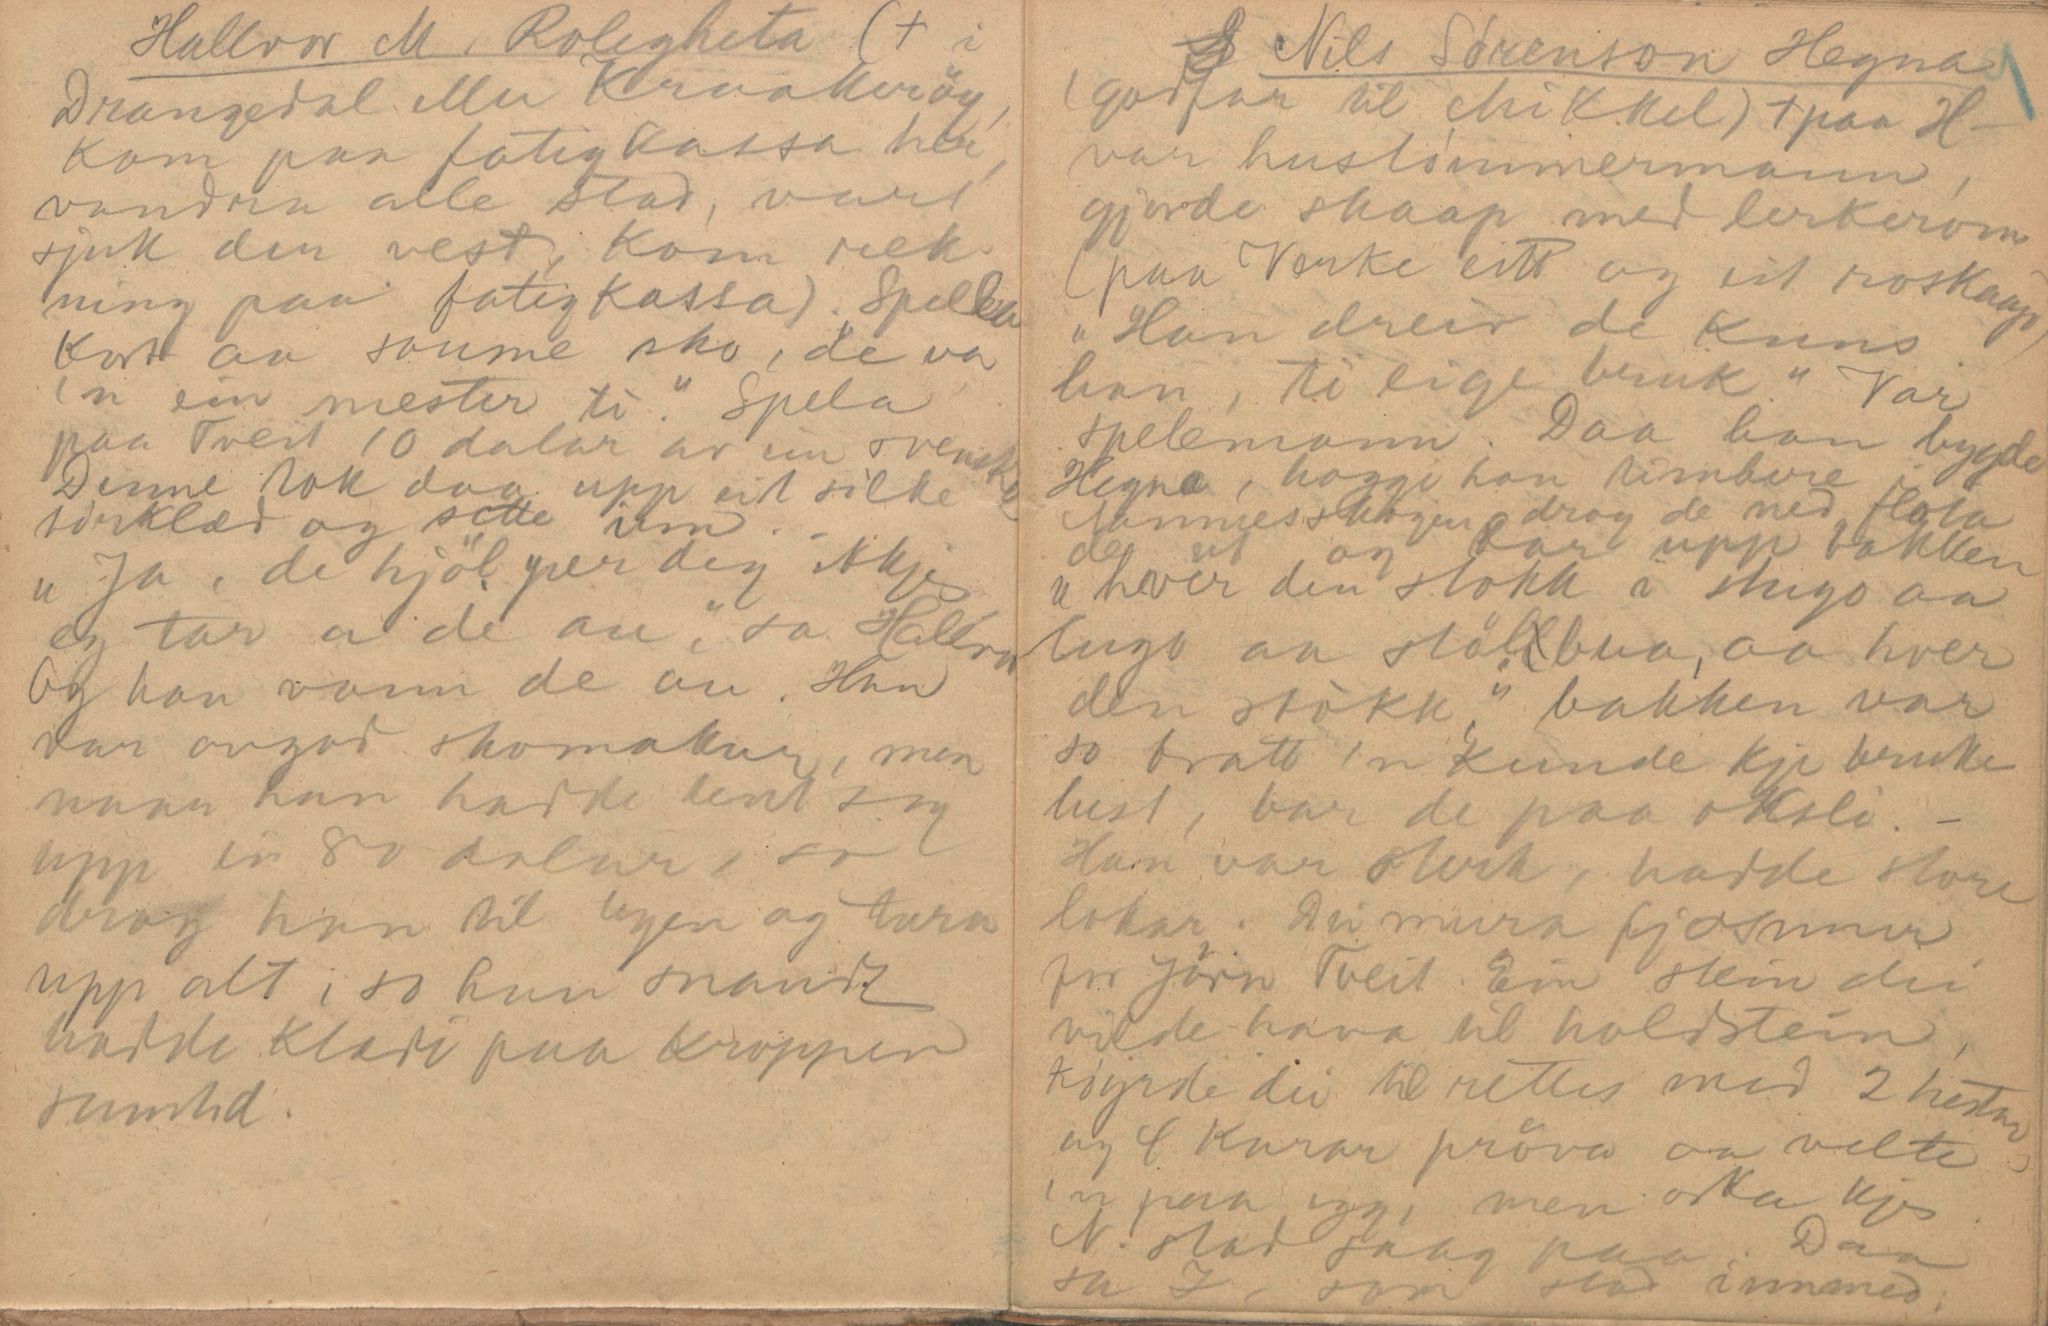 Hallvor M. Rolegheta († i
Drangedal eller Kraakerøy,
kom paa fatigkassa her,
vandra alle stad, vart
sjuk der vest, kom rek-
ning paa fatigkassa). Spela
kort aa saume sko, "de va
'n ein mester ti." Spela
paa Tveit 10 dalar av ein svenske
Denne tok daa upp eit silke
sørklæd og sette um. -
"Ja, de hjölper deg ikkje
eg tar a de au," sa Hallvor
Og han vann de au. Han
var ovgod skomakar, men
naar han hadde tent seg
upp ein 80 dalar, so
drog han til byen og tura
upp alt, so han snaudt
hadde klædi paa kroppen
sumtid.
Nils Sørenson Hegna
(godfar til Mikkel) † paa H-
var hustømmermann,
gjorde skaap med lerkerom
(paa Verke eitt og eit roskaap)
"Han dreiv de kuns
han, ti eige bruk." Var
spelemann. Daa han bygde
Hegna, hoggi han timbere i
skogen, drog de ned, flota
de ut og bar upp bakken
"hver den stokk i stugo aa
bugo aa stöllbua, aa hver
den stokk," bakken var
so bratt 'n kunde kje bruke
hest, bar de paa oksli. -
Han var sterk, hadde store
lokar. Dei mura fjosmur
for Jörn Tveit. Ein stein dei
vilde hava til holdstein,
köyrde dei til rettes med 2 hestar
og 4 karar pröva aa velte
'n paa egg, men orka kje.
N. stod saag paa. Daa
sa J, som stod innmed.